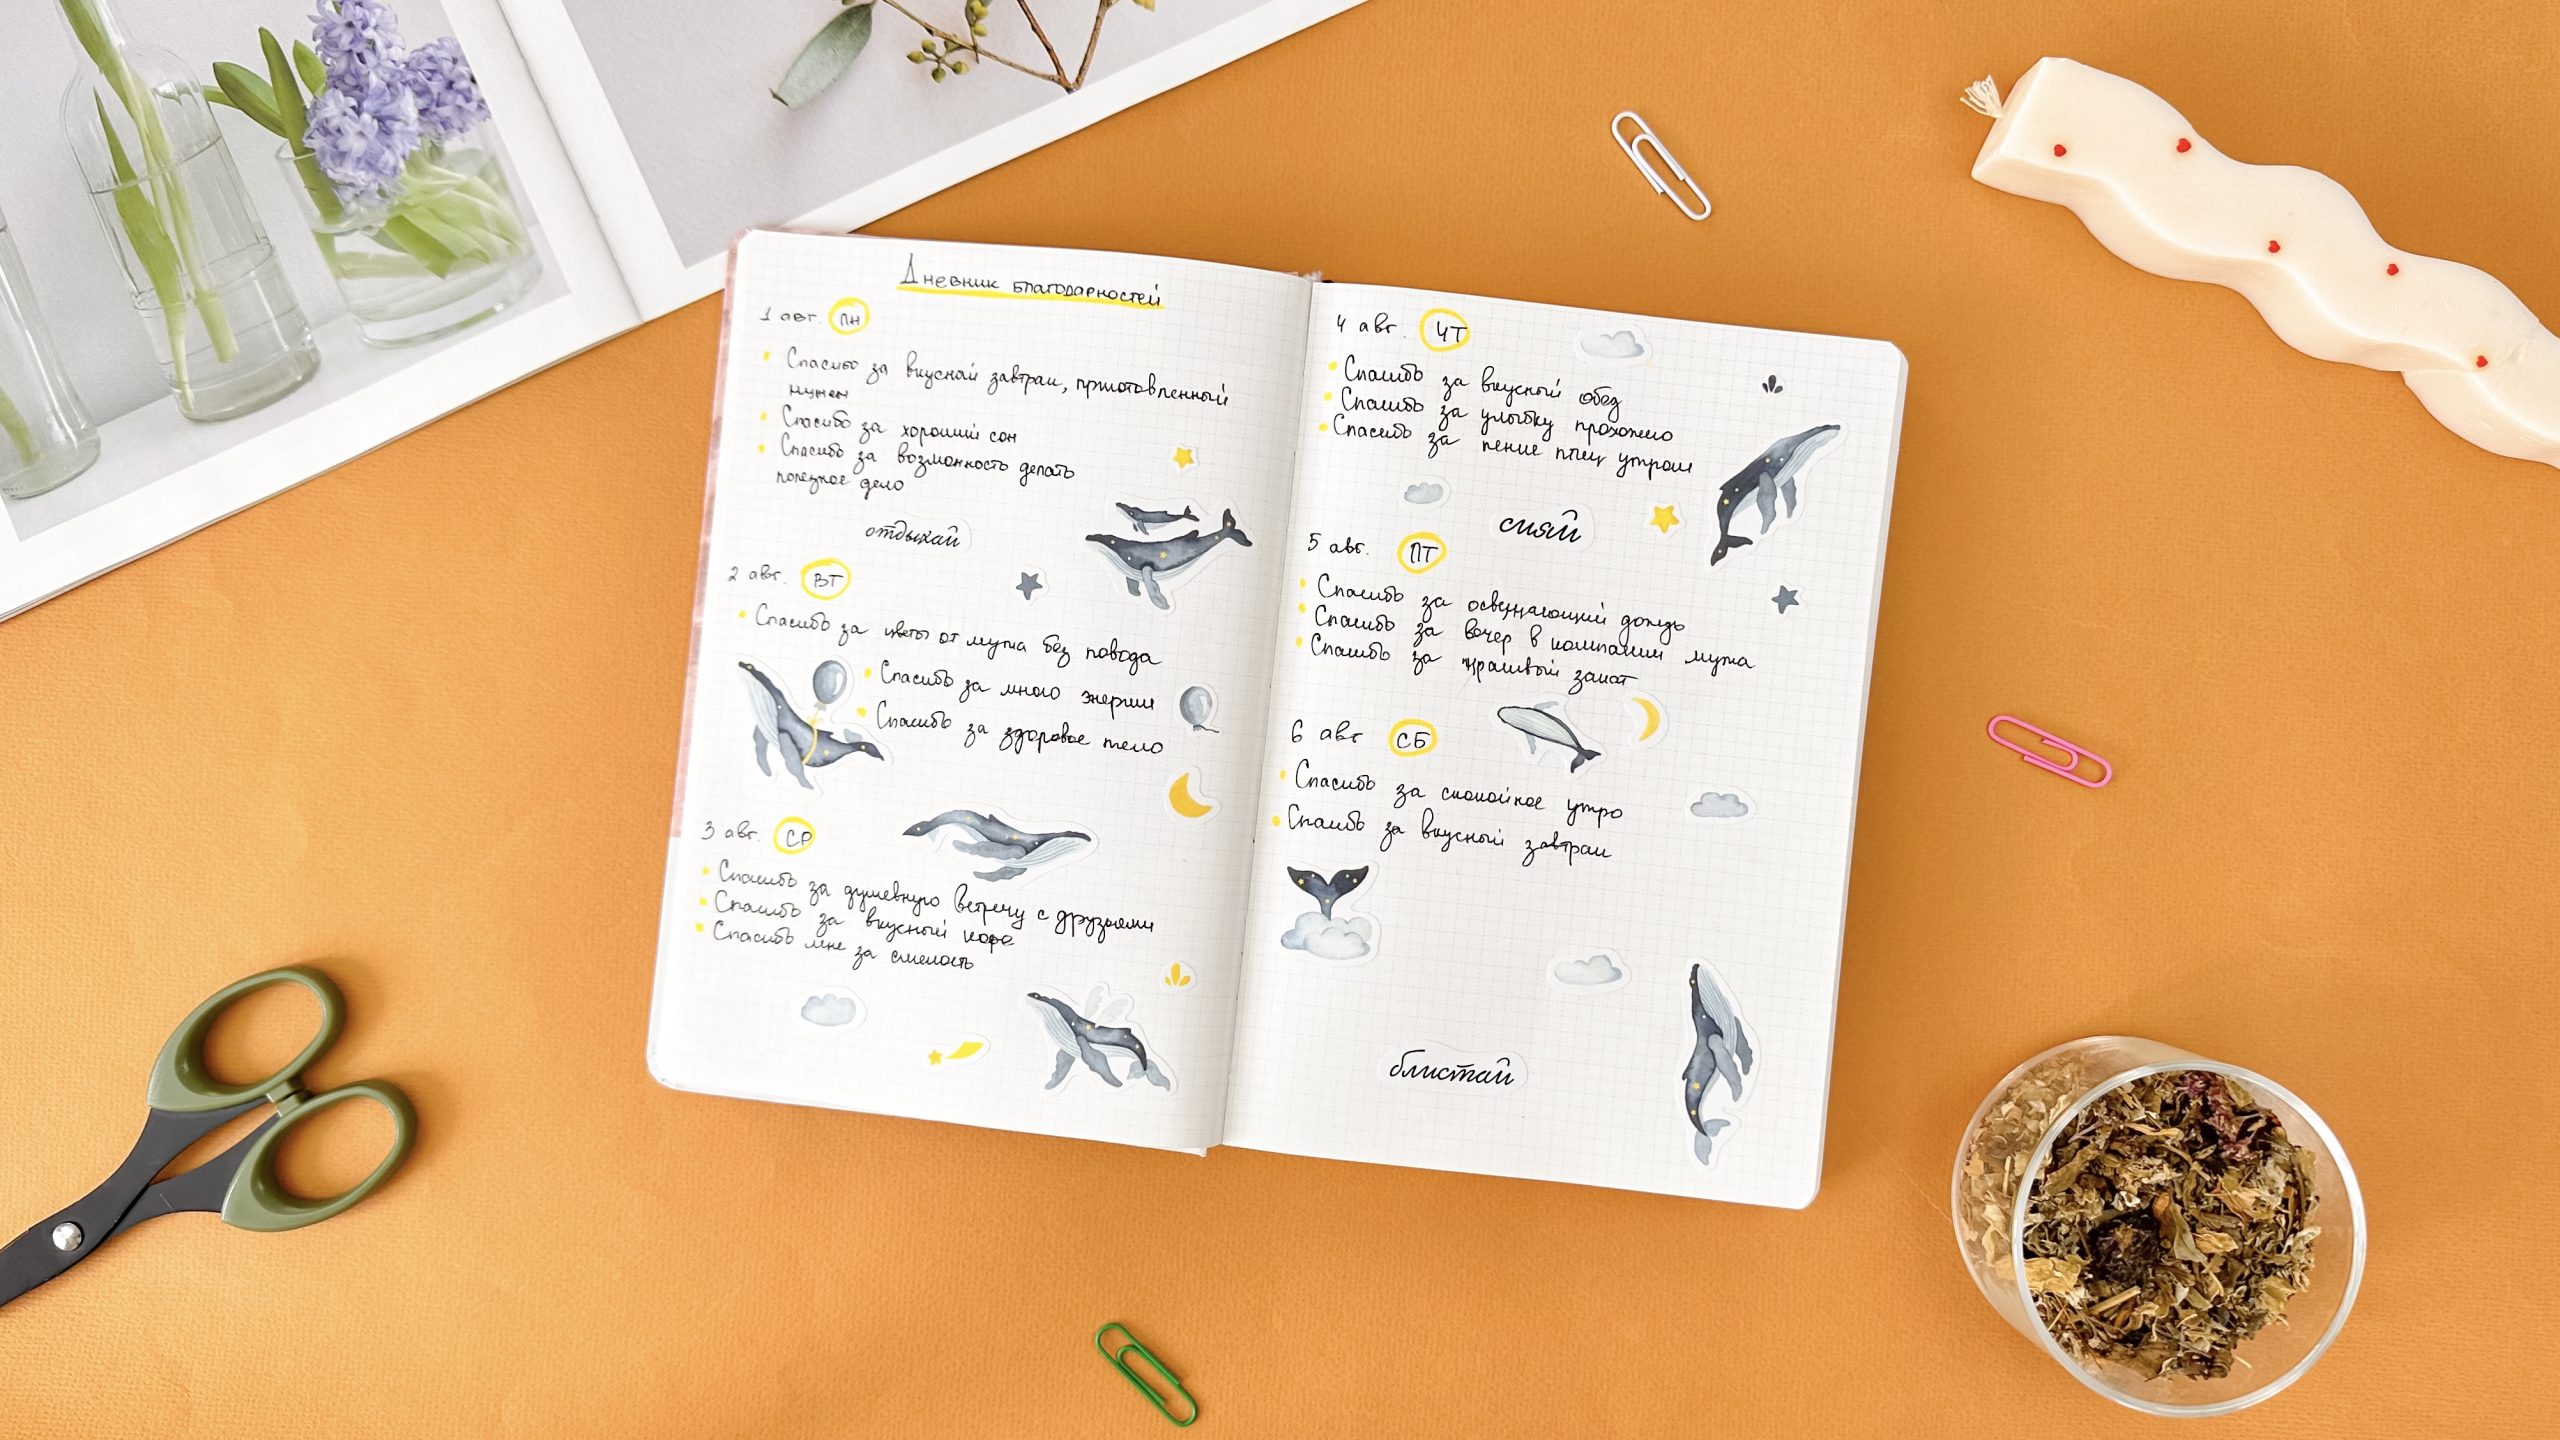 Дневник благодарностей
1 авг. ПН
Спасибо за вкусный завтрак, приготовленный
мужем
Спасибо за хороший сон
Спасибо за возможность делать
полезное дело
отдыхай
2 авг. ВТ
Спасибо за цветы от мужа без повода
Спасибо за много энергии
Спасибо за здоровое тело
3 авг. СР
Спасибо за душевную встречу с друзьями
Спасибо за вкусный кофе
Спасибо мне за смелость
4 авг. ЧТ
Спасибо за вкусный обед
Спасибо за улыбку прохожего
Спасибо за пение птиц утром
сияй
5 авг. ПТ
Спасибо за освежающий дождь
Спасибо за вечер в компании мужа
Спасибо за красивый закат
6 авг СБ
Спасибо за спокойное утро
Спасибо за вкусный завтрак
блистай